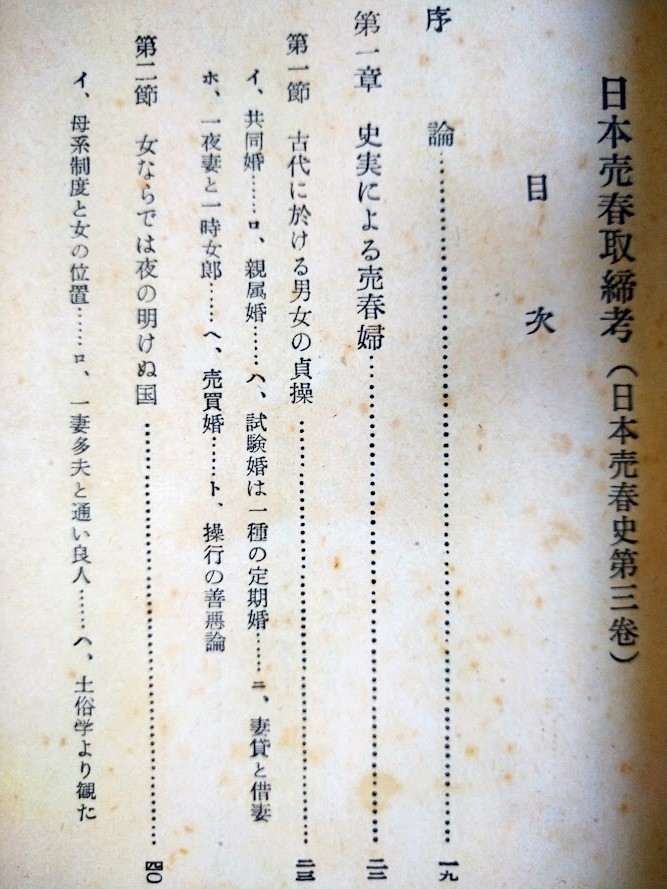 日本売春取締考(日本売春史第三巻)
目次
序論……………………一九
第一章 史実による売春婦……………………二三
第一節 古代に於ける男女の貞操……………………二三
イ、共同婚……ロ、親属婚……ハ、試験婚は一種の定期婚……ニ、妻貸と借妻
ホ、一夜妻と一時女郎……ヘ、売買婚……ト、操行の善悪論
第二節 女ならでは夜の明けぬ国……………………四〇
イ、母系制度と女の位置……ロ、一妻多夫と通い良人……ハ、土俗学より観た